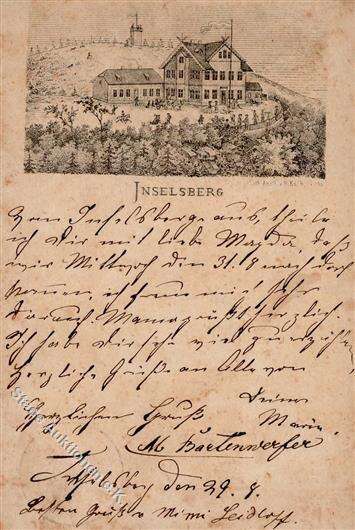 INSELSBERG
Vom Inselsberge aus, theile
ich Dir mit liebe Magda, daß
wir Mittwoch den 31.8 nach dort
kommen, ich freue mich sehr
darauf. Mama grüßt herzlich.
Ich habe Dir sehr viel zu erzählen
Herzliche Grüße an Alle von
Deiner
Herzlichen Gruß Marie
M Baetenwerfer
Inselsberg den 29. 8.
Besten Gruß v Mimi Leidloff